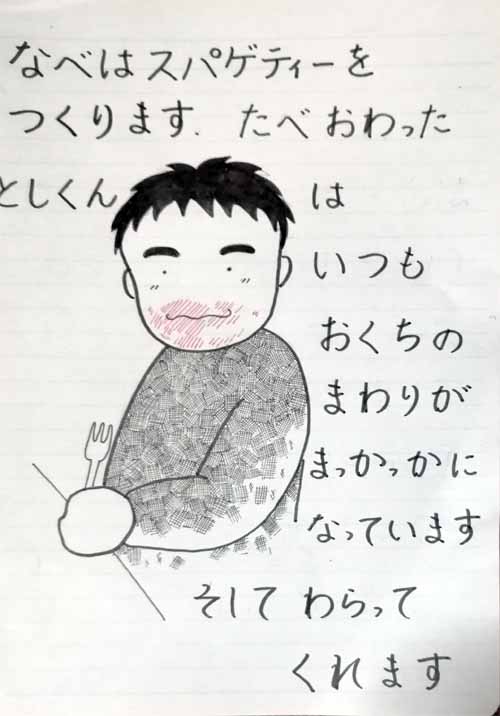 なべはスパゲティーを
つくります. たべおわった
としくん は
いつも
おくちの
まわりが
まっかっかに
なっています
そして わらって
くれます